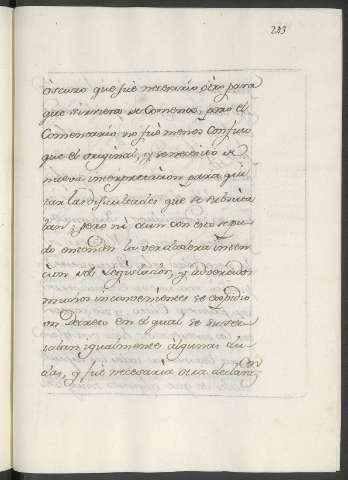 223
oscuro que fue necesario otro para
que sirviera de Comento, pero el
Comentario no fue menos confuso
que el original, y se necesitó de
nueva interpretacion para qui
tar las dificultades que se suscita
ban; pero ni aun con esto se pu
do entender la verdadera inten
cion del Legislador, y advertidos
muchos inconvenientes se expidio
un Decreto en el qual se suscí
taban igualmente algunas du
das, y fue necesaria otra declaraz.on